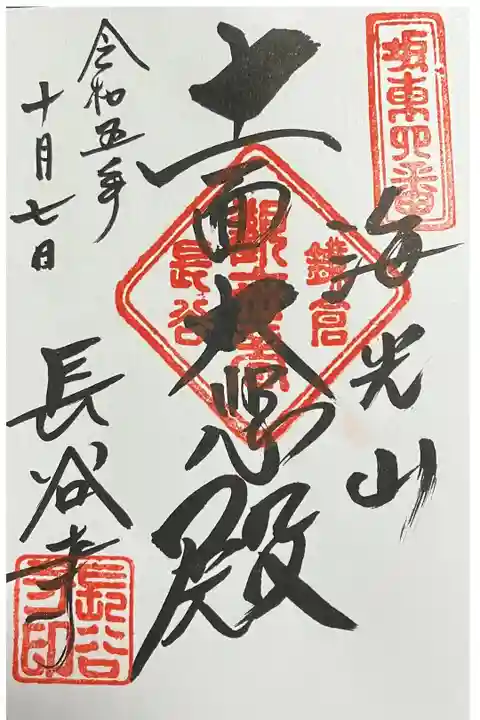 坂東四番
海光山
十一面大悲殿
鎌倉
観音堂
長谷
令和五年
十月七日
長谷寺
長谷寺印